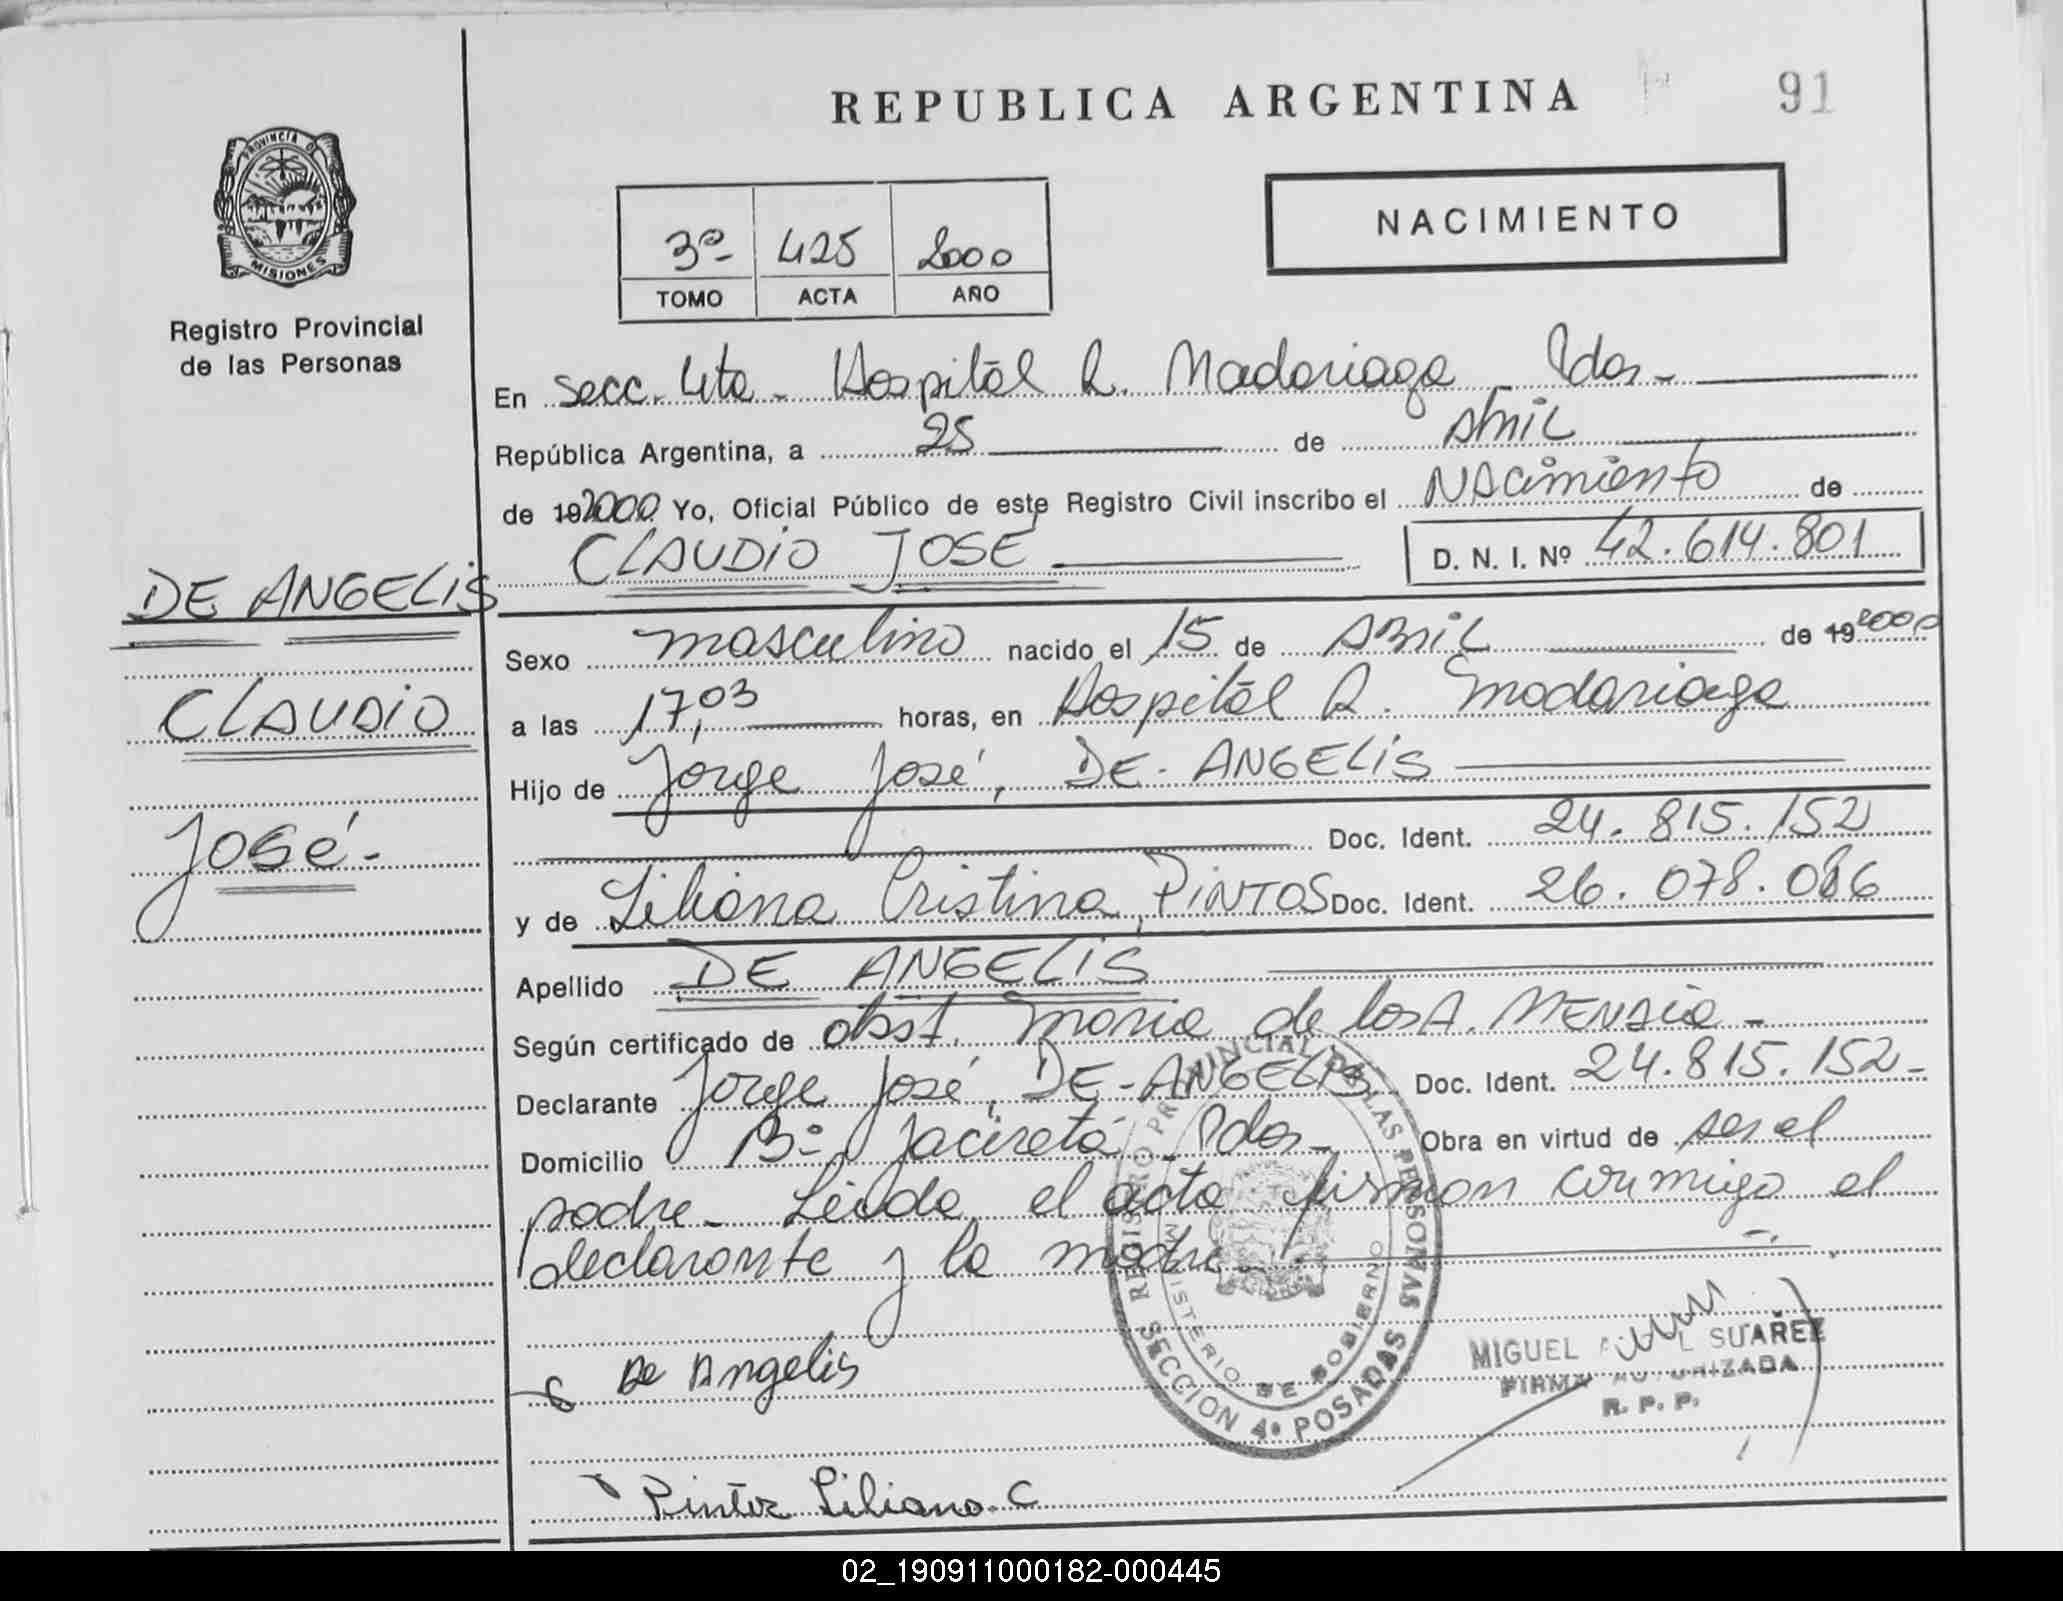 REPUBLICA ARGENTINA
91
PROVINCIA DE
MISIONES
Registro Provincial
de las Personas
3º- 425 2000
TOMO ACTA AÑO
NACIMIENTO
En secc. 4ta - Hospital R. Madariaga - Pdas -
República Argentina, a 25 de Abril
de 192000 Yo, Oficial Público de este Registro Civil inscribo el Nacimiento de
CLAUDIO JOSE D. N. I. Nº 42.614.801
DE ANGELIS
CLAUDIO
José -
Sexo masculino nacido el 15 de Abril de 192000
a las 17,03 horas, en Hospital R. Madariaga
Hijo de Jorge José, DE ANGELIS
Doc. Ident. 24.815.152
y de Liliana Cristina, PINTOS Doc. Ident. 26.078.086
Apellido DE ANGELIS
Según certificado de obst. Maria de los A.
Declarante Jorge José, DE ANGELIS Doc. Ident. 24.815.152 -
Domicilio Bº Jacireta - Pdas - Obra en virtud de ser el
padre - Leida el acta firman conmigo el
declarante y la madre -
De Angelis
Liliana C
REGISTRO PROVINCIAL DE LAS PERSONAS
MINISTERIO DE GOBIERNO
SECCION 4ª POSADAS
MIGUEL SUAREZ
FIRMA AUTORIZADA
R. P. P.
02_190911000182-000445